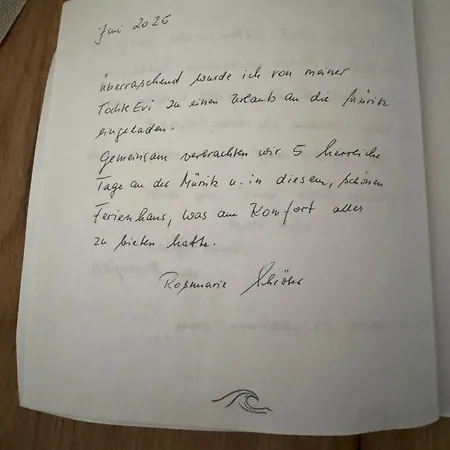 Juni 2026
Überraschend wurde ich von meiner
Tochter Evi zu einen Urlaub an die Müritz
eingeladen.
Gemeinsam verbrachten wir 5 herrliche
Tage an der Müritz u. in diesem, schönen
Ferienhaus, was am Komfort alles
zu bieten hatte.
Rosemarie